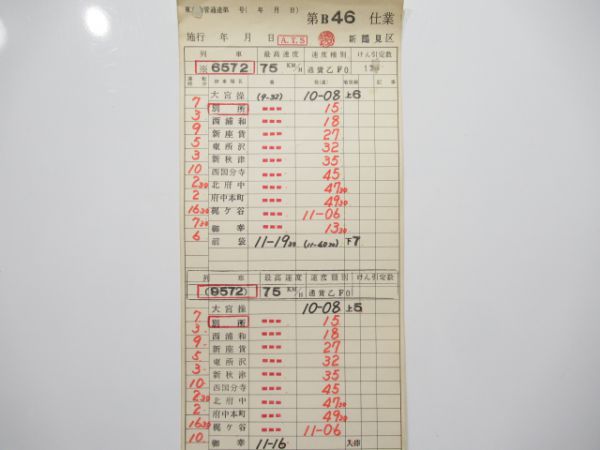 第B46 仕業
施行 年 月 日 A.T.S 新鶴見区
列車 最高速度 速度種別 けん引定数
※6572 75 KM/H 通貨乙F0
停車場名 着 発(通) 着発線 記事
大宮操 (9-32) 10-08 上6
7
別所 === 15
3
西浦和 === 18
9
新座貨 === 27
5
東所沢 === 32
3
新秋津 === 35
10
西国分寺 === 45
2 30
北府中 === 47 30
2
府中本町 === 49 30
16 30
梶ケ谷 === 11-06
7 30
御幸 === 13 30
6
前袋 11-19 30 (11-60 30) 下7
列車 最高速度 速度種別 けん引定数
(9572) 75 KM/H 通貨乙F0
大宮操 10-08 上5
7
別所 === 15
3
西浦和 === 18
9
新座貨 === 27
5
東所沢 === 32
3
新秋津 === 35
10
西国分寺 === 45
2 30
北府中 === 47 30
2
府中本町 === 49 30
16 30
梶ケ谷 === 11-06
10
御幸 11-16 入庫